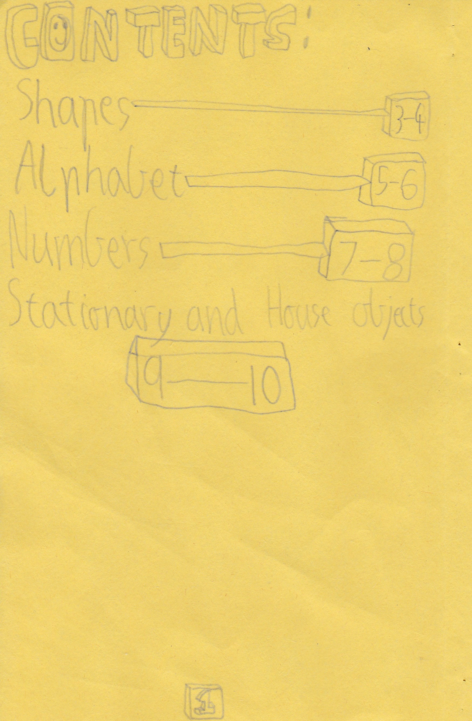 CONTENTS:
Shapes 3-4
Alphabet 5-6
Numbers 7-8
Stationary and House objects
9-10
1